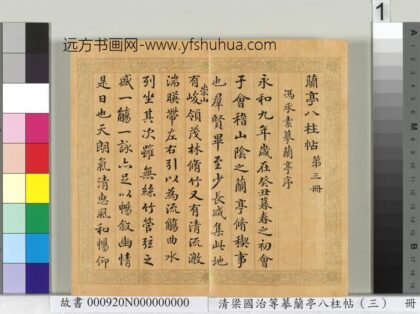 远方书画网-www.yfshuhua.com
1
蘭亭八柱帖 第三冊
馮承素摹蘭亭序
永和九年歲在癸丑暮春之初會
于會稽山陰之蘭亭脩稧事
也羣賢畢至少長咸集此地
有崇山峻領茂林脩竹又有清流激
湍暎帶左右引以為流觴曲水
列坐其次雖無絲竹管弦之
盛一觴一詠亦足以暢叙幽情
是日也天朗氣清惠風和暢仰
故書 000920N000000000
清梁國治等摹蘭亭八柱帖（三） 冊